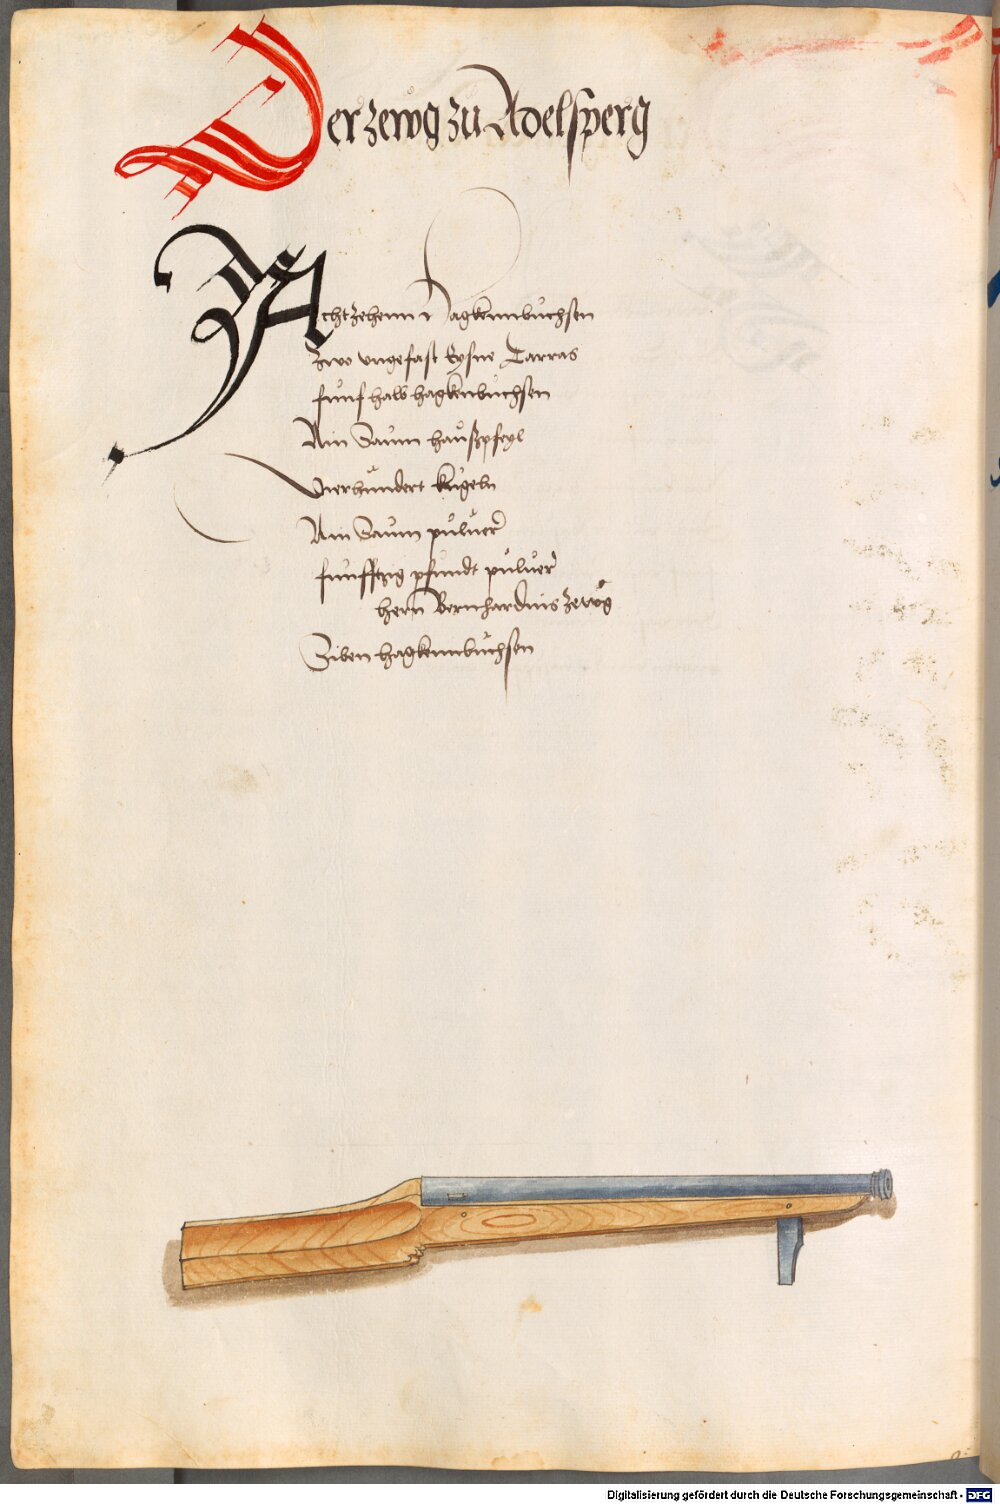 Der zewg zu Adelsperg
Achtzehenn Hagkennbuchsen
zwo vngefast Eysne Tarras
funf halb hagkenbuchsen
Ain Saum haußpfeyl
Vierhundert kugeln
Ain Saum puluer
funfftzig pfundt puluer
hern Bernhardins zewg
Siben hagkennbuchsen
Digitalisierung gefördert durch die Deutsche Forschungsgemeinschaft - DFG